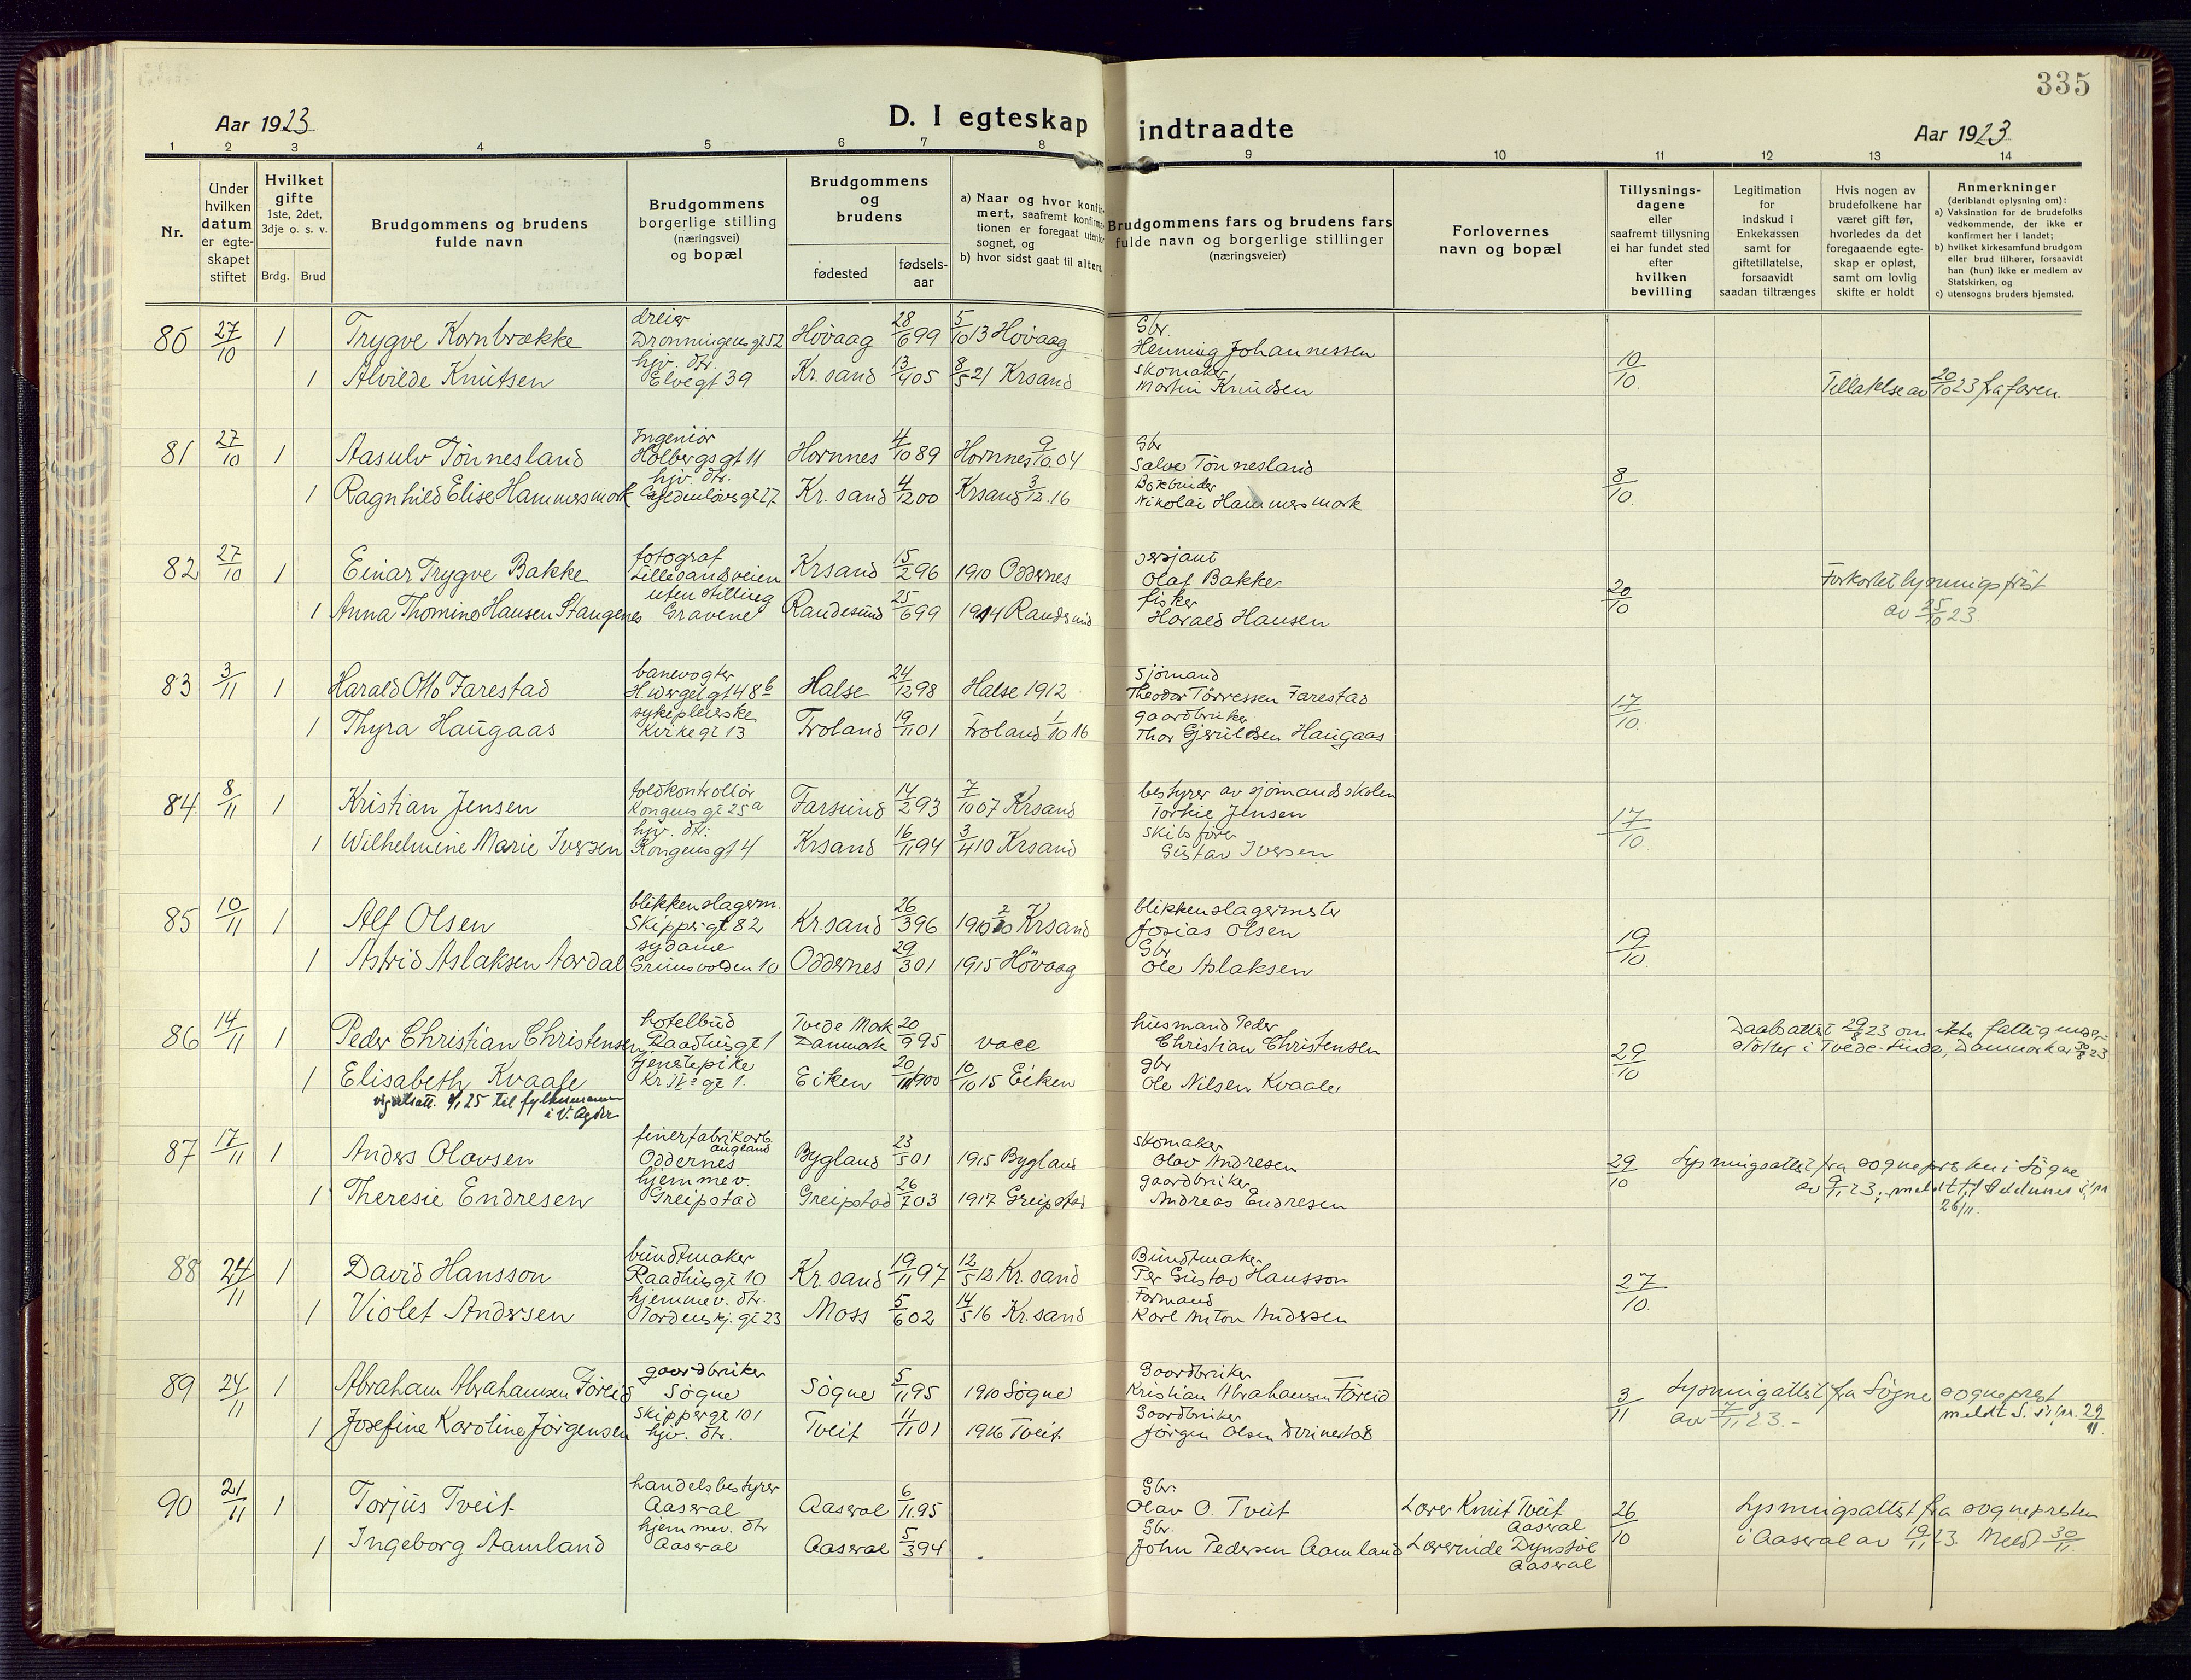 335
Aar 1923
D. I egteskap indtraadte
Aar 1923
1 2 3 4 5 6 7 8 9 10 11 12 13 14
Nr.
Under hvilken datum er egteskapet stiftet
Hvilket gifte 1ste, 2det, 3dje o. s. v.
Brdg. Brud
Brudgommens og brudens fulde navn
Brudgommens borgerlige stilling (næringsvei) og bopæl
Brudgommens og brudens
fødested
fødselsaar
a) Naar og hvor konfirmert, saafremt konfirmationen er foregaat utenfor sognet, og
b) hvor sidst gaat til alters.
Brudgommens fars og brudens fars fulde navn og borgerlige stillinger (næringsveier)
Forlovernes navn og bopæl
Tillysningsdagene eller saafremt tillysning ei har fundet sted efter hvilken bevilling
Legitimation for indskud i Enkekassen samt for giftetillatelse, forsaavidt saadan tiltrænges
Hvis nogen av brudefolkene har været gift før, hvorledes da det foregaaende egteskap er opløst, samt om lovlig skifte er holdt
Anmerkninger (deriblandt oplysning om):
a) Vaksination for de brudefolks vedkommende, der ikke er konfirmert her i landet;
b) hvilket kirkesamfund brudgom eller brud tilhører, forsaavidt han (hun) ikke er medlem av Statskirken, og
c) utensogns bruders hjemsted.
80 27/10 1 Trygve Kornbrække dreier Dronningens gt 52 Høvaag 28/6 99 5/10 13 Høvaag Gbr. Henning Johannessen 10/10.
1 Alvilde Knutsen hjv. dtr. Elvegt 39 Kr.sand 13/4 05 8/5 21 Krsand skomaker Martin Knudsen Tillatelse av 20/10 23 fra faren.
81 27/10 1 Aasulv Tönnesland Ingeniör Holbergs gt 11 Hornnes 4/10 89 Hornnes 9/10.04 Gbr Salve Tönnesland 8/10.
1 Ragnhild Elise Hammersmark hjv. dtr. Gyldenløvesgt 27 Kr.sand 4/12 00 Krsand 3/12.16 Bokbinder Nikolai Hammersmark
82 27/10 1 Einar Trygve Bakke fotograf Lillesandsveien Krsand 15/2 96 1910 Oddernes sersjant Olaf Bakke 20/10 Forkortet lysningsfrist av 25/10 23.
1 Anna Thomine Hansen Stangenes uten stilling Gravene Randesund 25/6 99 1914 Randesund fisker Harald Hansen
83 3/11 1 Harald Otto Farestad banevogter H. Wergel. gt 48 b Halse 24/12 98 Halse 1912 Sjömand Theodor Törressen Farestad 17/10.
1 Thyra Haugaas sykepleierske Kirkegt 13 Froland 19/11 01 Froland 1/10 16 gaardbruker Thor Gjeruldsen Haugaas
84. 8/11 1 Kristian Jensen toldkontrollör Kongens gt 25a Farsund 14/2 93 7/10 07 Krsand bestyrer av sjömandsskolen Torkie Jensen 17/10
1 Wilhelmine Marie Iversen hjv. dtr: Kongensgt 4 Krsand 16/11 94 3/4 10 Krsand skibsförer Gustav Iversen
85 10/11 1 Alf Olsen blikkenslagerm. Skippergt 82 Kr.sand 26/3 96 1910 2/10 Krsand blikkenslagermester Josias Olsen 19/10.
1 Astrid Aslaksen Aardal sydame Grimsvolden 10 Oddernes 29/3 01 1915 Høvaag Gbr Ole Aslaksen
86 14/11 1 Peder Christian Christensen hotelbud Raadhusgt 1 Tvede Mark Danmark 20/9 95 vacc husmand Peder Christian Christensen 29/10 Daabsattest 29/8 23 om ikke fattigunderstöttet i Tvede-Linde, Danmark av 30/8 23
1 Elisabeth Kvaale tjenestepike Kr IVs gt 1. Eiken 20/11 1900 10/10 15 Eiken gbr Ole Nilsen Kvaale
vigselsatt. 9/1 25 til fylkesmannen i V. Agder
87 17/11 1 Anders Olavsen finerfabrikarb. Augland Oddernes Bygland 23/5 01 1915 Bygland skomaker Olav Andresen 29/10 Lysningsattest fra sognepresten i Sögne av 9/11 23; meldt til Oddernes s.pr 26/11.
1 Theresie Endresen hjemmev. Greipstad Greipstad 26/7 03 1917 Greipstad gaardbruker Andreas Endresen
88 24/11 1 David Hansson bundtmaker Raadhusgt 10 Kr.sand 19/11 97 12/5 12 Kr.sand Bundtmaker Per Gustav Hansson 27/10.
1 Violet Andersen hjemmev. dtr. Tordenskj. gt 23 Moss 5/6 02 14/5 16 Kr.sand Formand Karl Anton Andersen
89 24/11 1 Abraham Abrahamsen Föreid gaardbruker Sögne Sögne 5/11 95 1910 Sögne Gaardbruker Kristian Abrahamsen Föreid 3/11 Lysningattest fra Sögne sogneprest av 7/11 23.- meldt S. s.pr. 29/11.
1 Josefine Karoline Jörgensen Skippergt 101 hjv. dtr. Tveit 11/11 01 1916 Tveit Gaardbruker Jörgen Olsen Drivestad
90 21/11 1 Torjus Tveit handelsbestyrer Aaseral Aaseral 6/11 95 Gbr. Olav O. Tveit Lærer Knut Tveit Aaseral 26/10 Lysningsattest fra sognepresten i Aaseral av 19/11 23. Meldt 30/11.
1 Ingeborg Aamland hjemmev. dtr Aaseral Aaseral 5/3 94 Gbr. John Pedersen Aamland Dynstöl Aaseral